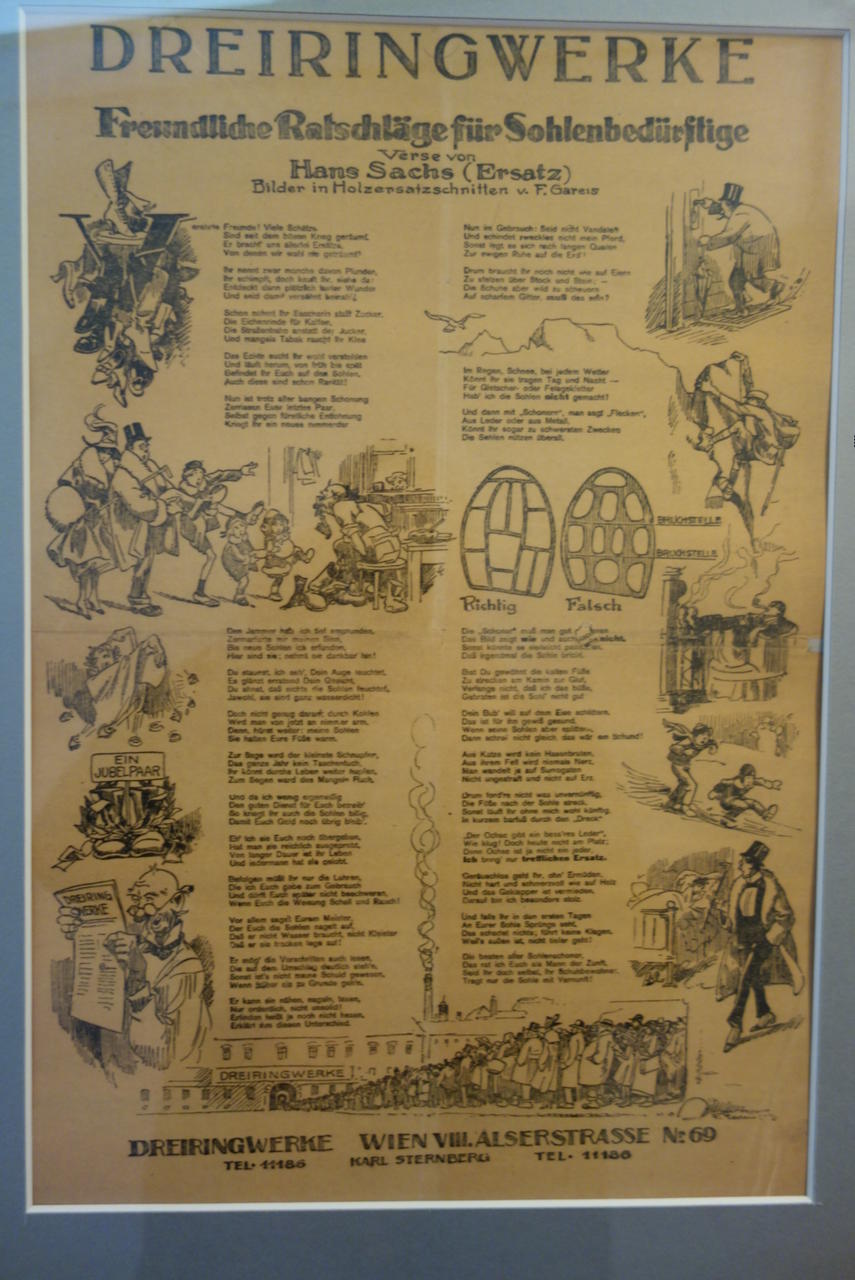 DREIRINGWERKE
Freundliche Ratschläge für Sohlenbedürftige
Verse von
Hans Sachs (Ersatz)
Bilder in Holzersatzschnitten v. F. Gareis
Freunde! Viele Schätze,
Sind seit dem bösen Krieg geräumt,
Er bracht' uns allerlei Ersätze,
Von denen wir wohl nie geträumt!
Ihr nennt zwar manche davon Plunder,
Ihr schimpft, doch kauft ihr, siehe da!
Entdeckt dann plötzlich lauter Wunder
Und seid damit versöhnt beinah'!
Schon nehmt ihr Saccharin statt Zucker,
Die Eichenrinde für Kaffee,
Die Straßenbahn anstatt der Jucker,
Und mangels Tabak raucht ihr Klee
Das Echte sucht ihr wohl verstohlen
Und läuft herum, von früh bis spät
Befindet ihr Euch auf den Sohlen,
Auch diese sind schon Rarität!
Nun ist trotz aller bangen Schonung
Zerrissen Euer letztes Paar,
Selbst gegen fürstliche Entlohnung
Kriegt ihr ein neues nimmerdar
Den Jammer hab ich tief empfunden,
Zermarterte mir meinen Sinn,
Bis neue Sohlen ich erfunden,
Hier sind sie; nehmt sie dankbar hin!
Du staunst, ich seh', Dein Auge leuchtet,
Es glänzt erstaunt Dein Gesicht,
Du ahnst, daß nichts die Sohlen feuchtet,
Jawohl, sie sind ganz wasserdicht!
Doch nicht genug darauf; durch Kohlen
Wird man von jetzt an nimmer arm,
Denn, höret weiter: meine Sohlen
Sie halten Eure Füße warm.
Zur Sage wird der kleinste Schnupfen,
Das ganze Jahr kein Taschentuch,
Ihr könnt durchs Leben weiter hupfen,
Zum Segen ward des Mangels Fluch.
Und da ich wenig eigennützig
Den guten Dienst für Euch betreib'
So kriegt ihr auch die Sohlen billig,
Damit Euch Geld noch übrig bleib'.
Eh' ich sie Euch noch übergeben,
Hat man sie reichlich ausgeprobt,
Von langer Dauer ist ihr Leben
Und jedermann hat sie gelobt.
Befolgen müßt ihr nur die Lehren,
Die ich Euch gebe zum Gebrauch
Und dürft Euch später nicht beschweren,
Wenn Euch die Weisung Schall und Rauch!
Vor allem saget Eurem Meister,
Der Euch die Sohlen nagelt auf,
Daß er nicht Wasser braucht, nicht Kleister
Daß er sie trocken lege auf!
Er mög' die Vorschriften auch lesen,
Die auf dem Umschlag deutlich steh'n,
Sonst ist's nicht meine Schuld gewesen,
Wenn früher sie zu Grunde geh'n.
Er kann sie nähen, nageln,
Nur ordentlich, nicht unsolid!
Erfinden heißt ja noch nicht hexen,
Erklärt ihm diesen Unterschied.
EIN
JUBELPAAR
DREIRING
WERKE
Nun im Gebrauch: Seid nicht Vandalen
Und schindet zwecklos nicht mein Pferd,
Sonst legt es sich nach langen Qualen
Zur ewigen Ruhe auf die Erd'!
Drum braucht ihr noch nicht wie auf Eiern
Zu stelzen über Stock und Stein; —
Die Schuhe aber wild zu scheuern
Auf scharfem Gitter, muß das sein?
Im Regen, Schnee, bei jedem Wetter
Könnt ihr sie tragen Tag und Nacht —
Für Gletscher- oder Felsgekletter
Hab' ich die Sohlen nicht gemacht!
Und dann mit „Schonern“, man sagt „Flecken“,
Aus Leder oder aus Metall,
Könnt ihr sogar zu schwersten Zwecken
Die Sohlen nützen überall.
BRUCHSTELLE
BRUCHSTELLE
Richtig Falsch
Die „Schoner“ muß man gut
Das Bild zeigt wie und auch wie nicht,
Sonst könnte es vielleicht passieren,
Daß irgendmal die Sohle bricht.
Bist Du gewöhnt die kalten Füße
Zu strecken am Kamin zur Glut,
Verlange nicht, daß ich das büße,
Gebraten ist die Sohl' nicht gut
Dein Bub' will auf dem Eise schlittern,
Das ist für ihn gewiß gesund,
Wenn seine Sohlen aber splittern,
Dann schrei nicht gleich, das wär ein Schund!
Aus Katze wird kein Hasenbraten,
Aus ihrem Fell wird niemals Nerz,
Man wandelt ja auf Surrogaten
Nicht ungestraft und nicht auf Erz.
Drum ford're nicht was unvernünftig,
Die Füße nach der Sohle streck,
Sonst läuft ihr ohne mich wohl künftig,
In kurzem barfuß durch den „Dreck“
„Der Ochse gibt ein bess'res Leder“,
Wie klug! Doch heute nicht am Platz;
Denn Ochse ist ja nicht ein jeder,
Ich bring' nur trefflichen Ersatz.
Geräuschlos geht ihr, ohn' Ermüden,
Nicht hart und schmerzvoll wie auf Holz
Und das Geklapper ist vermieden,
Darauf bin ich besonders stolz.
Und falls ihr in den ersten Tagen
An Eurer Sohle Sprünge seht,
Das schadet nichts; führt keine Klagen,
Weil's außen ist, nicht tiefer geht!
Die besten aller Sohlenschoner,
Das rat ich Euch als Mann der Zunft,
Seid ihr doch selbst, ihr Schuhbewohner,
Tragt nur die Sohle mit Vernunft!
DREIRINGWERKE
DREIRINGWERKE WIEN VIII. ALSERSTRASSE No 69
TEL. 11186 KARL STERNBERG TEL. 11186